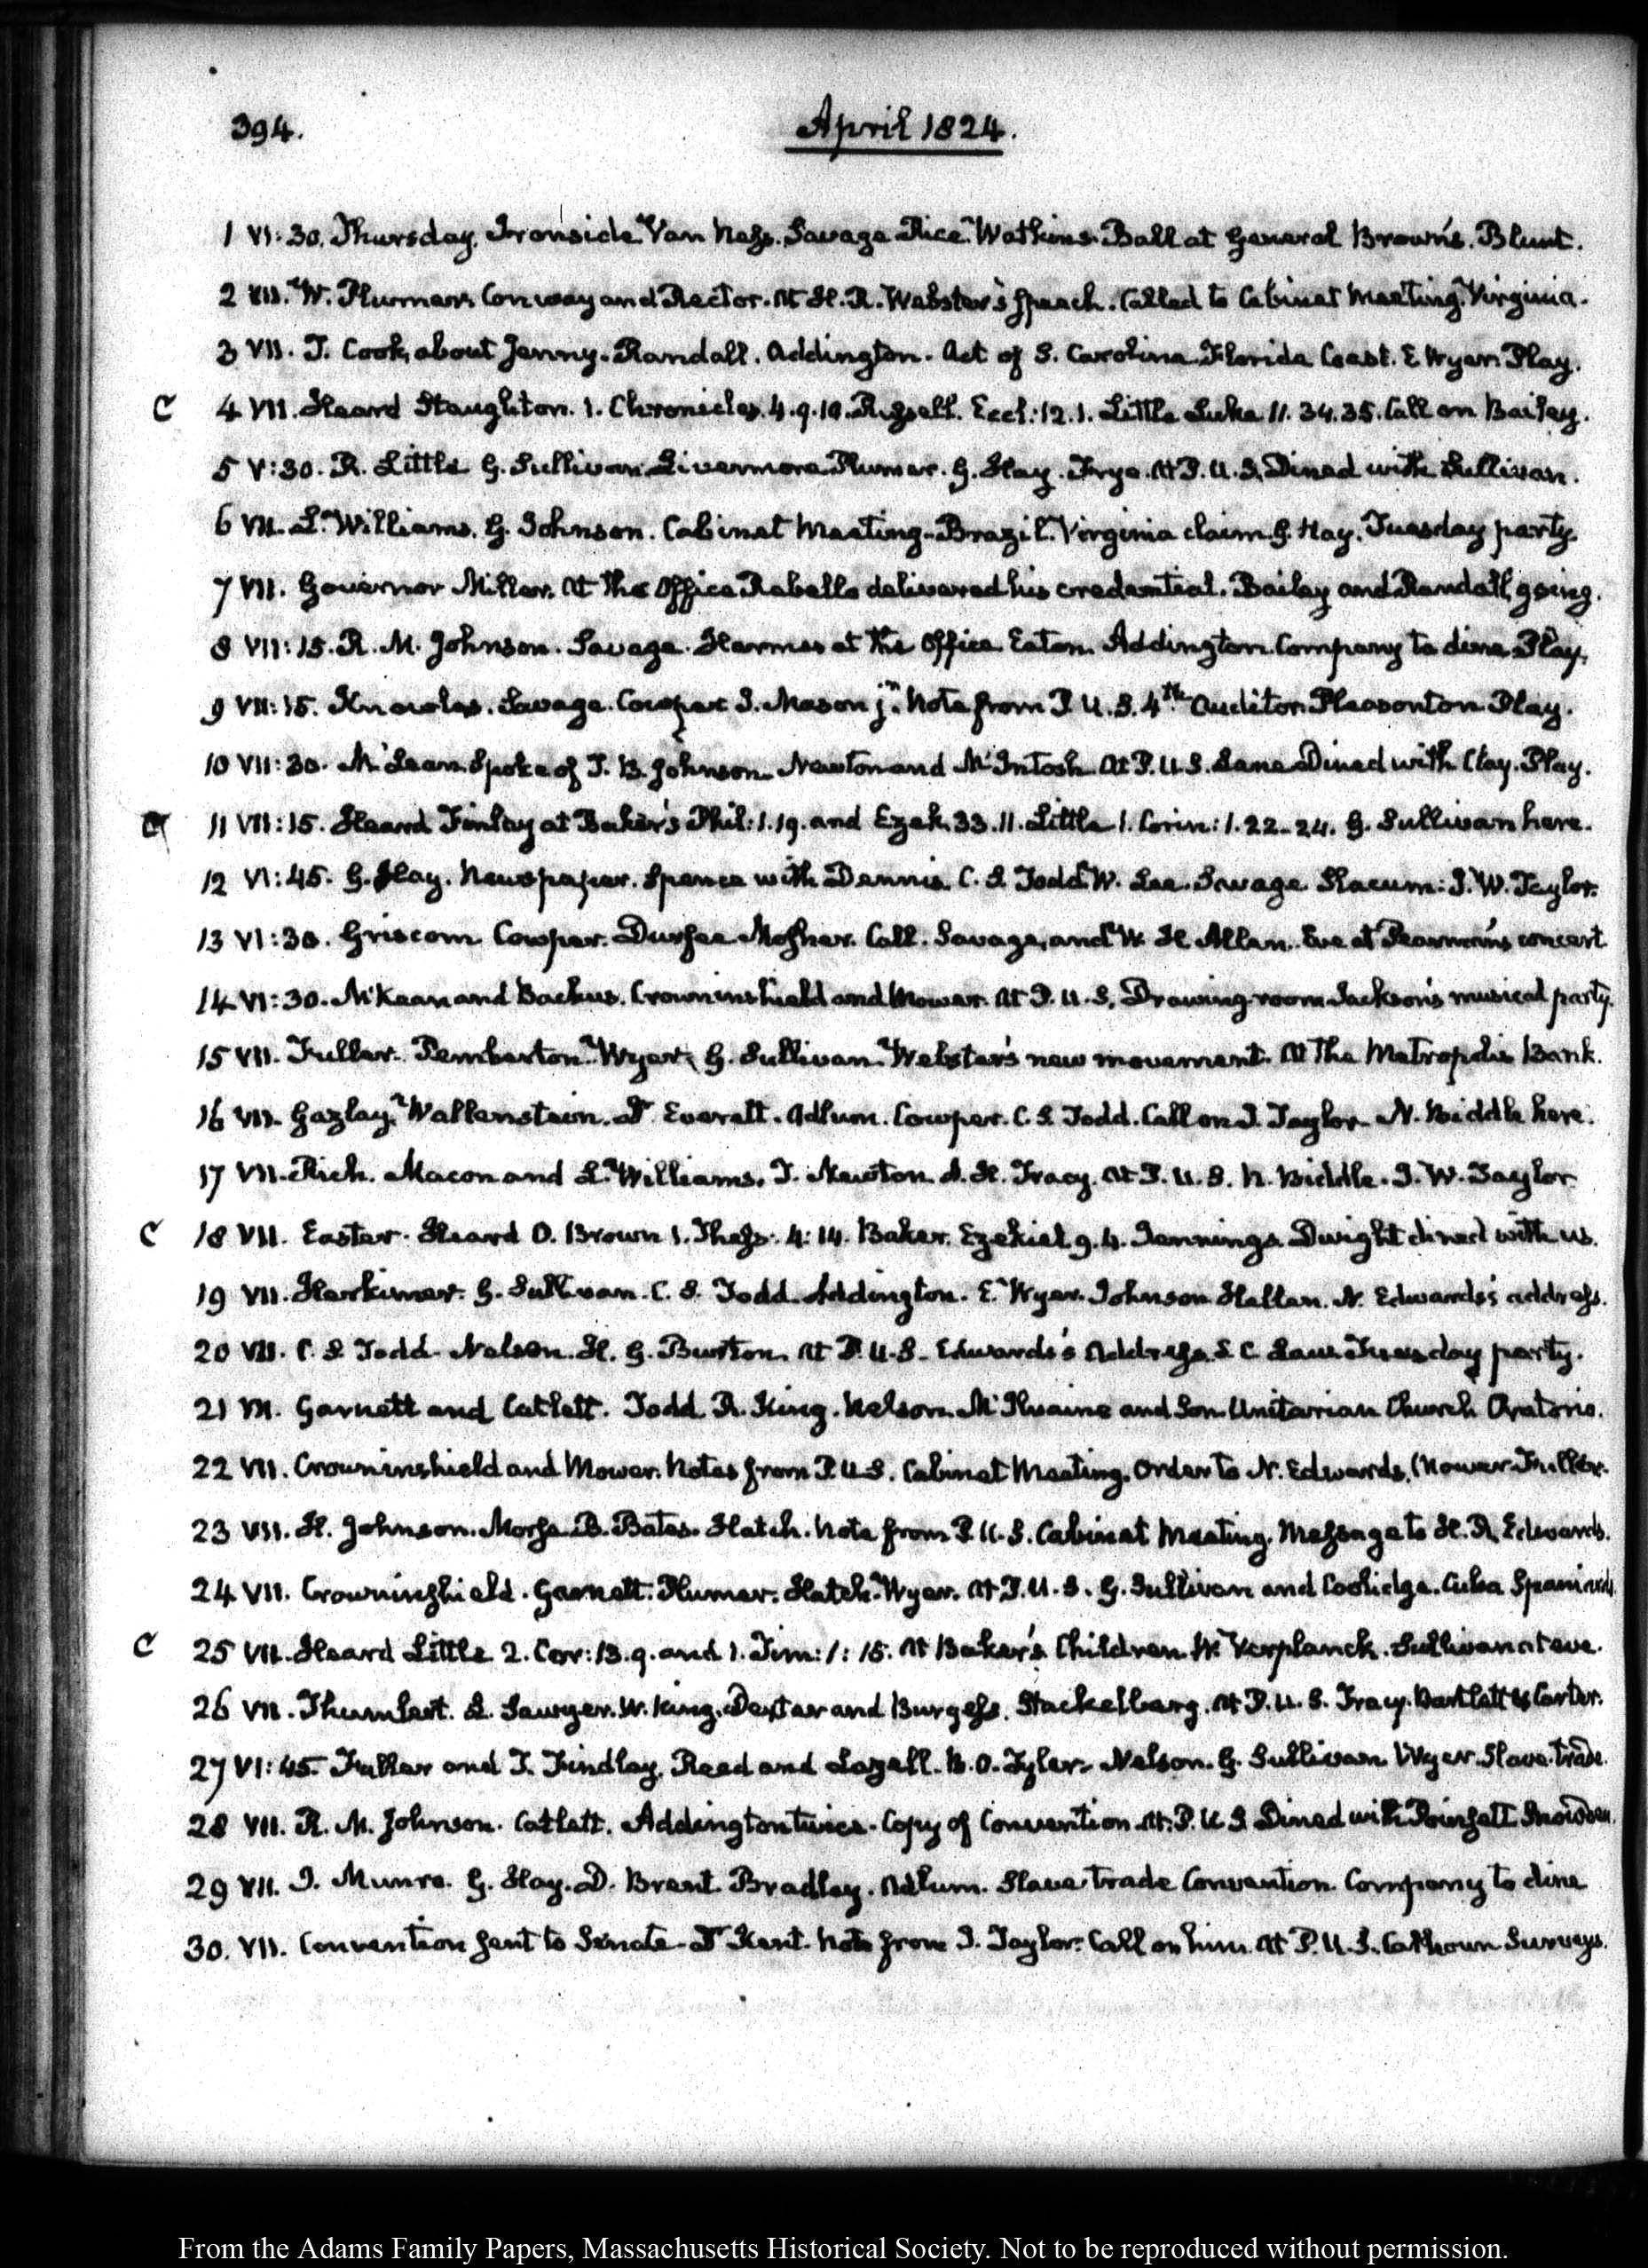 394.
April 1824.
1 VI:30. Thursday. Ironside. Van Ness. Savage. Rice. Watkins. Ball at General Brown's. Blunt.
2 VII. W. Plumer. Conway and Rector. At H. R. Webster's speech. Called to Cabinet Meeting. Virginia.
3 VII. J. Cook, about Jenny. Randall. Addington. Act of S. Carolina. Florida Coast. E Wyer. Play.
C 4 VII. Heard Staughton. 1. Chronicles. 4.9.10. Russell. Eccl: 12.1. Little Luke 11. 34.35. Call on Bailey.
5 V:30. R. Little G. Sullivan. Livermore Plumer. G. Hay. Frye. At P. U. S. Dined with Sullivan.
6 VII. L. Williams. G. Johnson. Cabinet Meeting. Brazil. Virginia claim. G. Hay. Tuesday party.
7 VII. Governor Miller. At the Office Rebello delivered his credential. Bailey and Randall, going.
8 VII:15. R. M. Johnson. Savage. Harmer at the Office. Eaton. Addington. Company to dine. Play.
9 VII:15. Knowles. Savage. Cowper. J. Mason jr. Note from P. U. S. 4th Auditor. Pleasonton. Play.
10 VII:30. McLean. Spoke of J. B. Johnson. Newton and McIntosh. At P. U. S. Lane. Dined with Clay. Play.
C 11 VII:15. Heard Finlay at Baker's Phil: 1.19. and Ezek. 33.11. Little 1. Corin: 1.22-24. G. Sullivan here.
12 VI:45. G. Hay. Newspaper. Spence with Dennis. C. S. Todd. W. Lee. Savage. Slacum: J. W. Taylor.
13 VI:30. Griscom. Cowper. Durfee. Mosher. Call. Savage, and W. H Allen. Eve at Pearman's concert.
14 VI:30. McKean and Backus. Crowninshield and Mower. At P. U. S. Drawing-room. Jackson's musical party.
15 VII. Fuller. Pemberton. Wyer. G. Sullivan. Webster's new movement. At the Metropolis Bank.
16 VII. Gazlay. Wallenstein. Dr Everett. Adlum. Cowper. C. S. Todd. Call on J. Taylor. N. Biddle here.
17 VII. Rich. Macon and L. Williams. T. Newton. A. H. Tracy. At P. U. S. N. Biddle. J. W. Taylor
C 18 VII. Easter. Heard O. Brown 1. Thess. 4:14. Baker. Ezekiel 9.4. Jennings. Dwight dined with us.
19 VII. Herkimer. G. Sullivan. C. S. Todd. Addington. E. Wyer. Johnson. Hallan. N. Edwards's address.
20 VII. C. S. Todd. Nelson. H. G. Burton. At P. U. S. Edwards's Address. S. C. Law. Tuesday party.
21 VI. Garnett and Catlett. Todd. R. King. Nelson. McIlvaine and Son. Unitarian Church Oratorio.
22 VII. Crowninshield and Mower. Notes from P. U S. Cabinet Meeting. Order to N. Edwards. Mower. Fuller.
23 VII. H. Johnson. Morse. B. Bates. Hatch. Note from P. U. S. Cabinet Meeting. Message to H. R. Edwards.
24 VII. Crowninshield. Garnett. Plumer. Hatch. Wyer. At P. U. S. G. Sullivan and Coolidge. Cuba Spaniards.
C 25 VII. Heard Little 2. Cor: 13.9. and 1. Tim: 1:15. At Baker's. Children. Verplanck. Sullivan at eve.
26 VII. Thumlert. L. Sawyer. W. King. Dexter and Burgess. Stackelberg. At P. U. S. Tracy. Bartlett & Carter.
27 VI:45. Fuller and J. Findlay. Reed and Lazell. B. O. Tyler. Nelson. G. Sullivan. Wyer. Slave-trade.
28 VII. R. M. Johnson. Catlett. Addington twice. Copy of Convention. At P. U S. Dined with Poinsett. Snowden.
29 VII. J. Munro. G. Hay. D. Brent. Bradley. Adlum. Slave trade Convention. Company to dine
30. VII. Convention sent to Senate. Dr Kent. Note from J. Taylor. Call on him. At P. U. S. Calhoun Surveys.
From the Adams Family Papers, Massachusetts Historical Society. Not to be reproduced without permission.